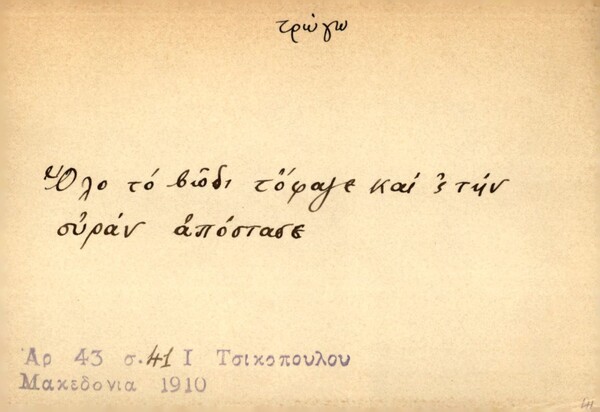 τρώγω
Ὅλο τό βῶδι τὄφαγε καί 'ς τήν
οὐράν ἀπόστασε
Ἀρ 43 σ. 41 Ι Τσικοπουλου
Μακεδονια 1910